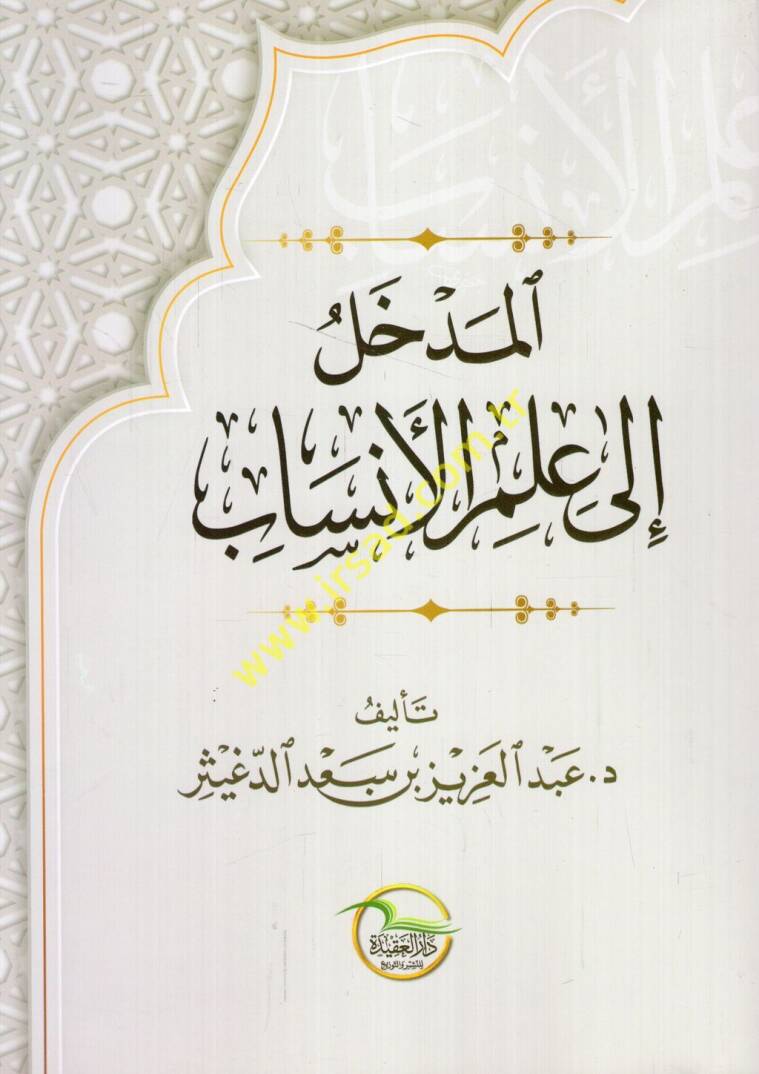 علم الأنساب
المدخل
إلى علم الأنساب
www.irsad.com.tr
تأليف
د. عبد العزيز بن سعد الدغيثر
دار العقيدة
للنشر والتوزيع